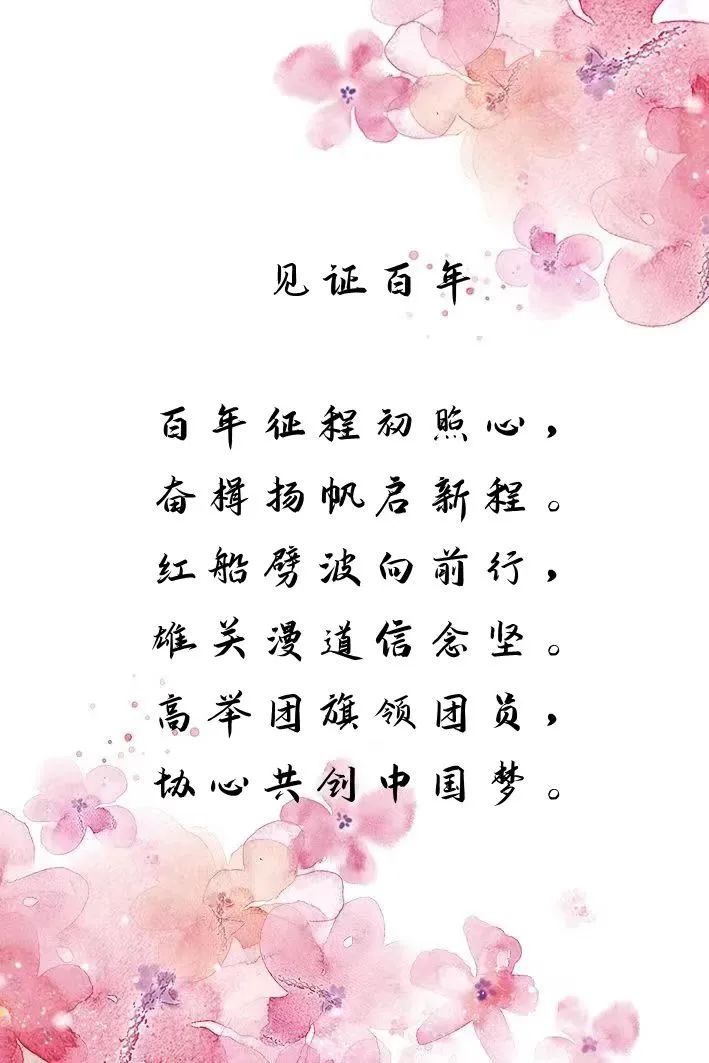 见证百年
百年征程初照心，
奋楫扬帆启新程。
红船劈波向前行，
雄关漫道信念坚。
高举团旗领团员，
协心共创中国梦。